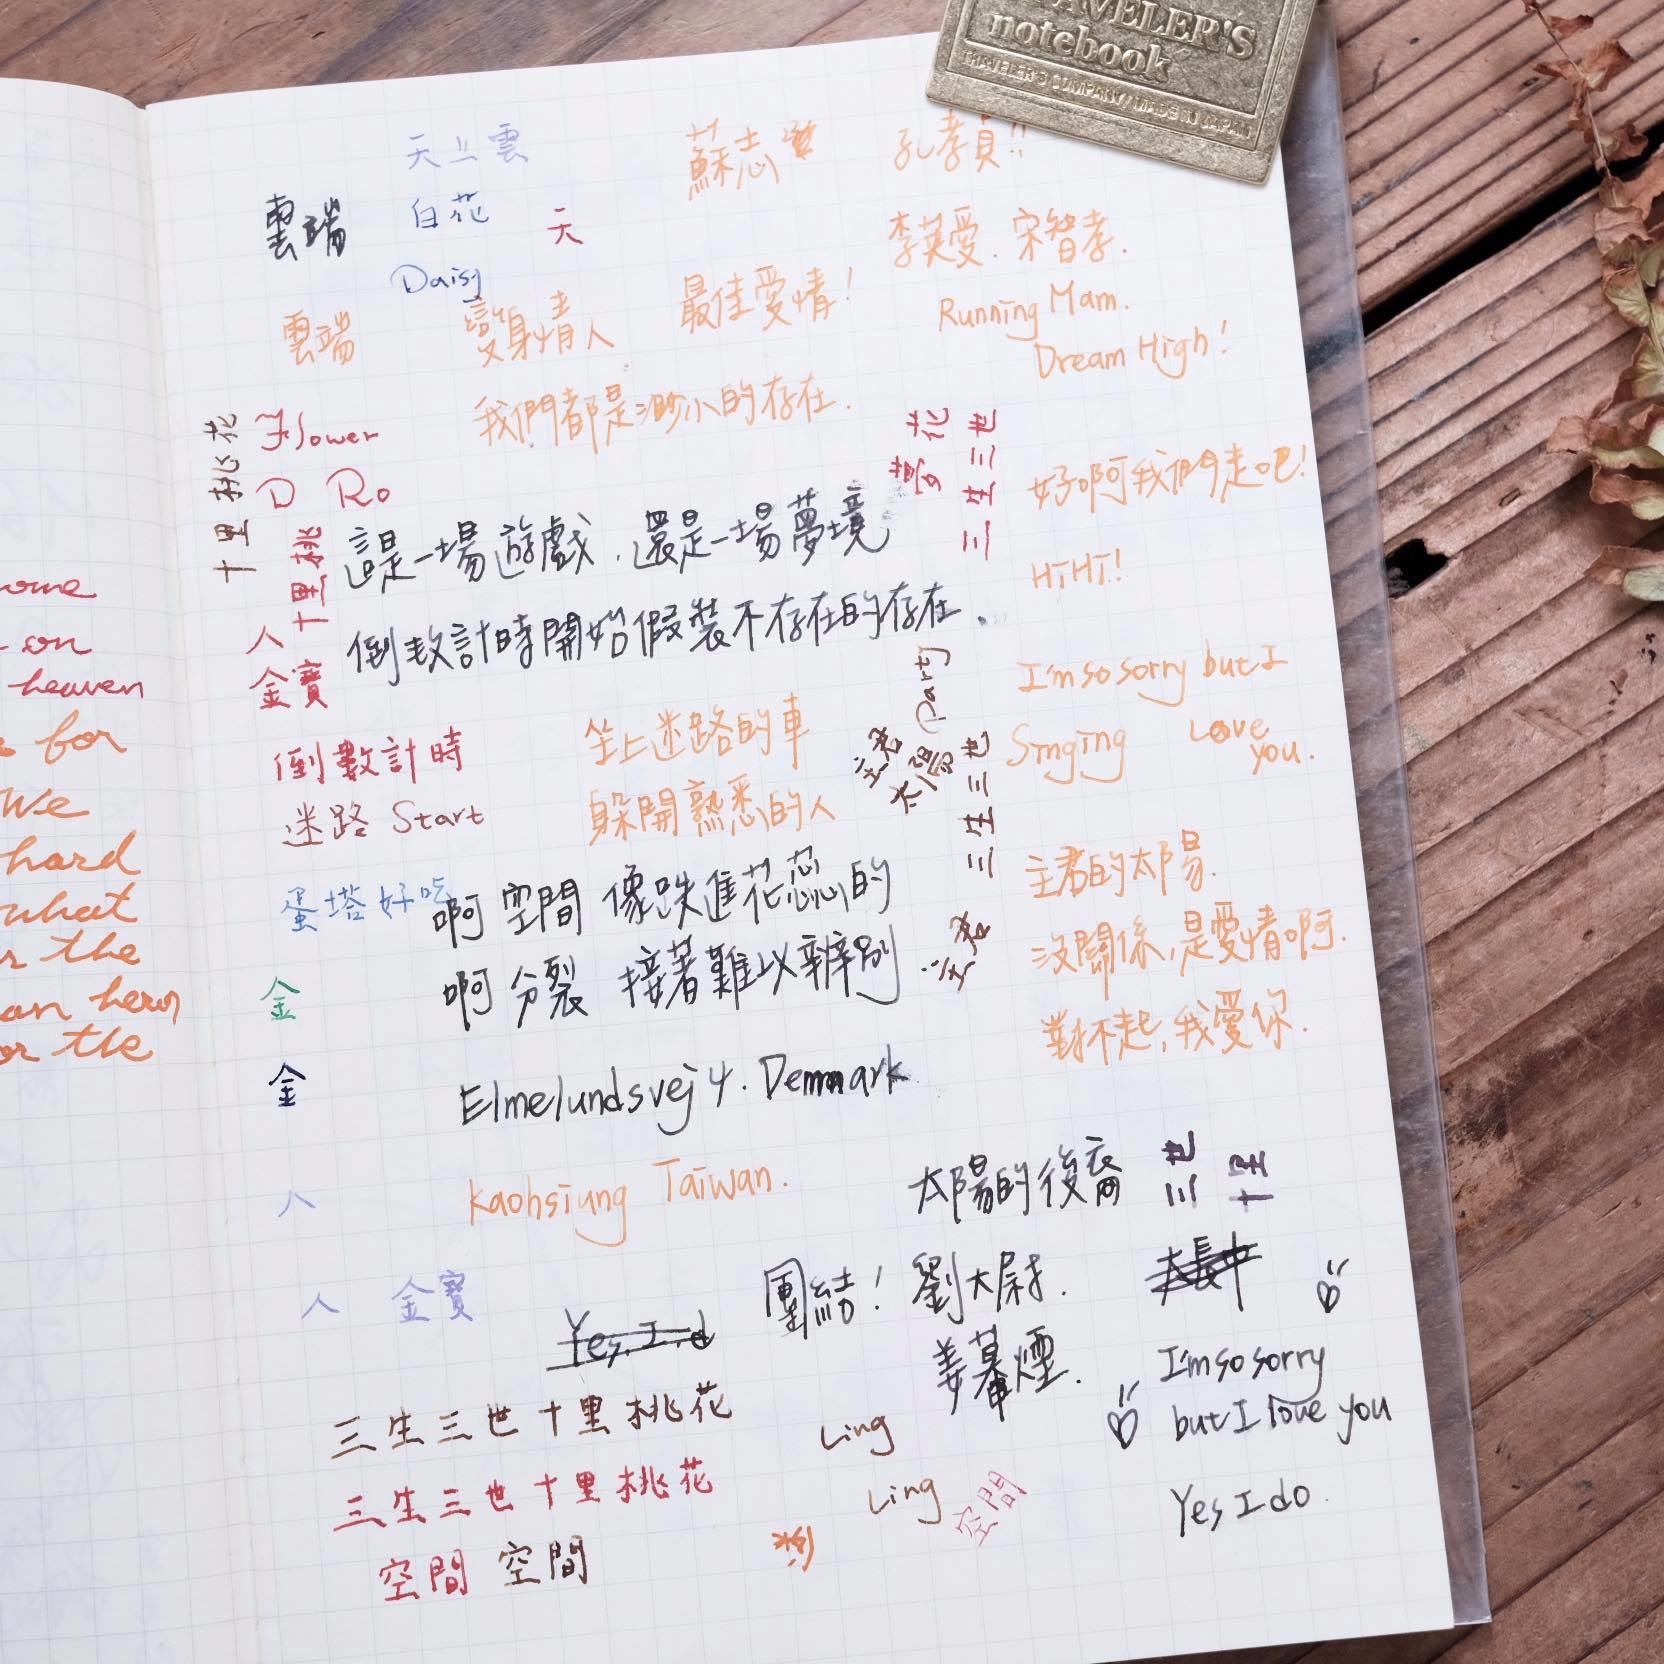 TRAVELER'S
notebook
TRAVELER'S COMPANY / MADE IN JAPAN
天上雲
蘇志燮
孔孝真!!
雲端
白花
天
李英愛. 宋智孝.
Daisy
雲端
變身情人
最佳愛情!
Running Mam.
Dream High!
我們都是渺小的存在.
十里桃花
Flower
D Ro
夢花
三生三世
好啊我們走吧!
十里桃
這是一場遊戲.還是一場夢境
HiHi!
人
金寶
倒數計時開始假裝不存在的存在.
I'm so sorry but I
Love you.
Singing
倒數計時
坐上迷路的車
主君
太陽 Party
三生三世
迷路 Start
躲開熟悉的人
主君的太陽.
蛋塔好吃
啊 空間 像跌進花蕊的
主君
沒關係,是愛情啊.
金
啊 分裂 接著難以辨別
對不起,我愛你.
金
Elmelundsvej 4. Denmark
人
Kaohsiung Taiwan.
太陽的後裔
三世
十里
人 金寶
Yes. I. d
團結! 劉大尉.
姜暮煙.
I'm so sorry
but I love you
三生三世十里桃花
Ling
三生三世十里桃花
Ling
空間
Yes I do.
空間 空間
ome
on
heaven
for
We
hard
what
the
an hern
or the